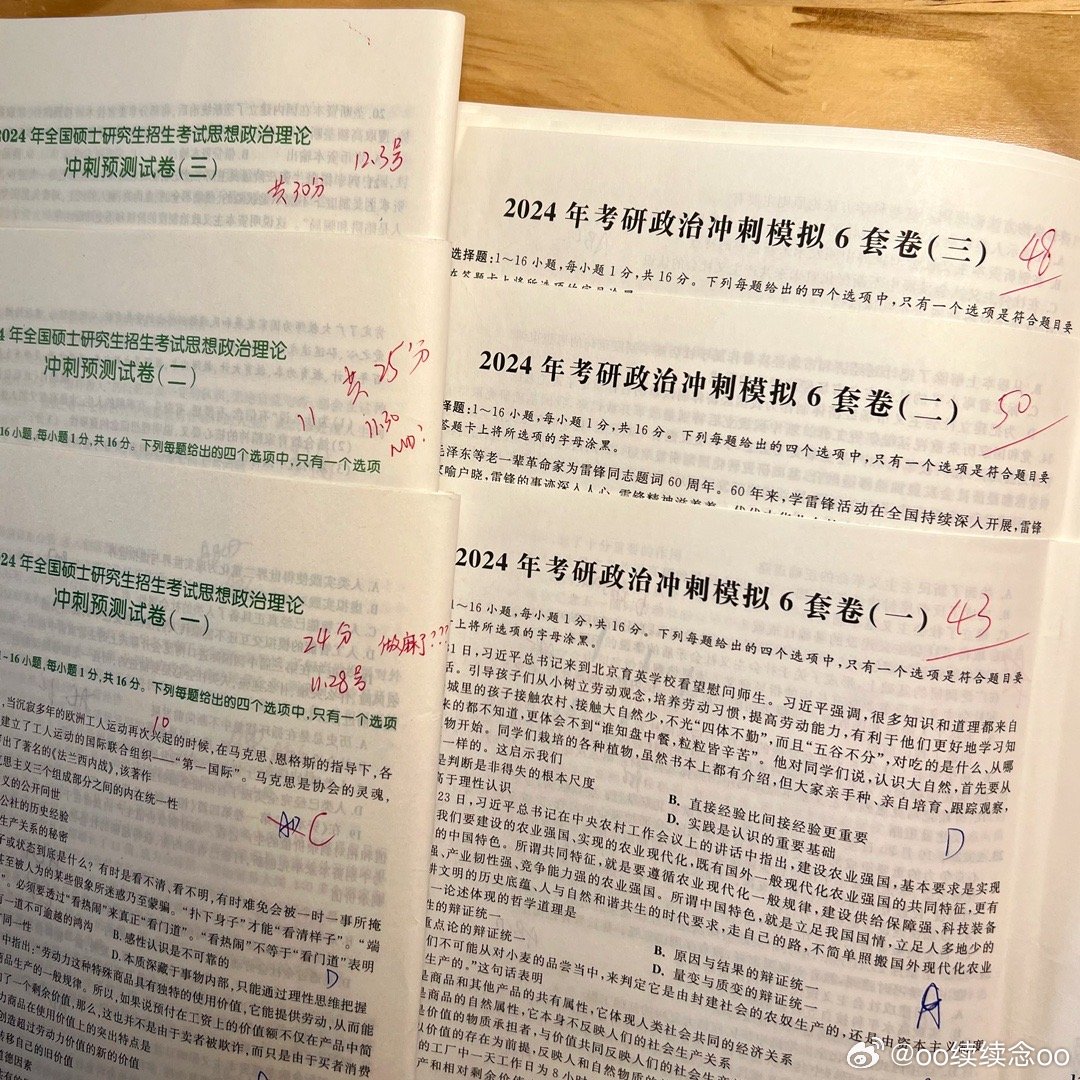 2024 年全国硕士研究生招生考试思想政治理论
冲刺预测试卷(三)
12.3号
共30分
年全国硕士研究生招生考试思想政治理论
冲刺预测试卷(二)
共25分
11
11.30
16 小题,每小题1分,共16分。下列每题给出的四个选项中,只有一个选项
24 年全国硕士研究生招生考试思想政治理论
冲刺预测试卷(一)
24分
做麻了???
11.28号
~16小题,每小题1分,共16分。下列每题给出的四个选项中,只有一个选项
10
,当沉寂多年的欧洲工人运动再次兴起的时候,在马克思、恩格斯的指导下,各
建立了工人运动的国际联合组织——“第一国际”。马克思是协会的灵魂,
了著名的《法兰西内战》,该著作
思主义三个组成部分之间的内在统一性
义的公开问世
公社的历史经验
生产关系的秘密
C
或状态到底是什么?有时是看不清,看不明,有时难免会被一时一事所掩
甚至被人为的某些假象所迷惑乃至蒙骗。“扑下身子”才能“看清样子”。“端
”。必须要透过“看热闹”来真正“看门道”。“看热闹”不等于“看门道”表明
一道不可逾越的鸿沟
B.感性认识是不可靠的
同一性
D.本质深藏于事物内部,只能通过理性思维把握
D
中指出:“劳动力这种特殊商品具有独特的使用价值,它能提供劳动,从而能
商品生产的一般规律。所以,如果说预付在工资上的价值额不仅在产品中简
了一个剩余价值,那么,这也并不是由于卖者被欺诈,而只是由于买者消费
力商品在使用价值上的突出特点是
创造超过劳动力价值的新的价值
转移自己的旧价值
道德因素
2024 年考研政治冲刺模拟 6 套卷(三)
48
选择题:1~16小题,每小题1分,共16分。下列每题给出的四个选项中,只有一个选项是符合题目要
2024 年考研政治冲刺模拟 6 套卷(二)
50
择题:1~16小题,每小题1分,共16分。下列每题给出的四个选项中,只有一个选项是符合题目要
答题卡上将所选项的字母涂黑。
毛泽东等老一辈革命家为雷锋同志题词60周年。60年来,学雷锋活动在全国持续深入开展,雷锋
家喻户晓,雷锋的事迹深入人心,雷锋精神滋养着一代代
2024 年考研政治冲刺模拟 6 套卷(一)
43
1~16小题,每小题1分,共16分。下列每题给出的四个选项中,只有一个选项是符合题目要
上将所选项的字母涂黑。
31日,习近平总书记来到北京育英学校看望慰问师生。习近平强调,很多知识和道理都来自
活。引导孩子们从小树立劳动观念,培养劳动习惯,提高劳动能力,有利于他们更好地学习知
城里的孩子接触农村、接触大自然少,不光“四体不勤”,而且“五谷不分”,对吃的是什么、从哪
来的都不知道,更体会不到“谁知盘中餐,粒粒皆辛苦”。他对同学们说,认识大自然,首先要从
物开始。同学们栽培的各种植物,虽然书本上都有介绍,但大家亲手种、亲自培育、跟踪观察,
一样的。这启示我们
是判断是非得失的根本尺度
B. 直接经验比间接经验更重要
高于理性认识
D. 实践是认识的重要基础
D
23日,习近平总书记在中央农村工作会议上的讲话中指出,建设农业强国,基本要求是实现
我们要建设的农业强国、实现的农业现代化,既有国外一般现代化农业强国的共同特征,更有
的中国特色。所谓共同特征,就是要遵循农业现代化一般规律,建设供给保障强、科技装备
强、产业韧性强、竞争能力强的农业强国。所谓中国特色,就是立足我国国情,立足人多地少的
耕文明的历史底蕴、人与自然和谐共生的时代要求,走自己的路,不简单照搬国外现代化农业
一论述体现的哲学道理是
性的辩证统一
B. 原因与结果的辩证统一
重点论的辩证统一
D. 量变与质变的辩证统一
A
们不可能从对小麦的品尝当中,来判定它是由封建社会的农奴生产的,还是由资本主义
生产的。”这句话表明
是商品和其他产品的共有属性,它体现人类社会共同的经济关系
是商品的自然属性,它本身不反映人们的社会生产关系
是价值的物质承担者,与价值共同反映人们的社会生产关系
以价值的存在为前提,反映人和自然物质的
的工厂中一天工作日为8小时
产和相对剩余价值
@oo续续念oo